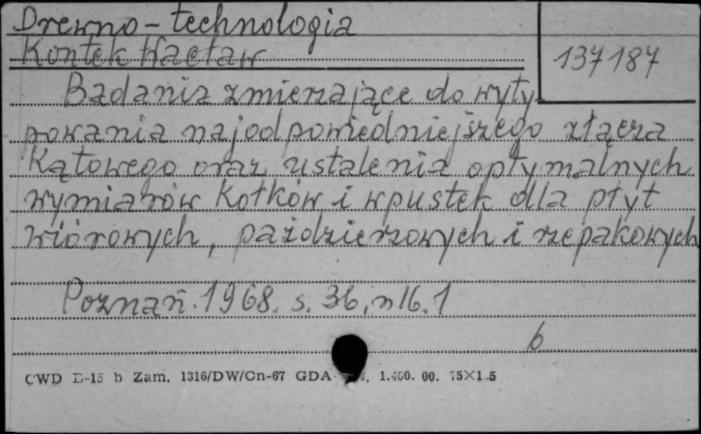 Drewno - technologia
Kontek Wacław
137187
Badania zmierzające do wyty-
powania najodpowiedniejszego złącza
Kątowego oraz ustalenia optymalnych
wymiarów Kołków i wpustek dla płyt
wiórowych, paździerzowych i rzepakowych
Poznań. 1968. s. 36, nlb. 1
b
CWD E-15 b Zam. 1316/DW/Cn-67 GDA